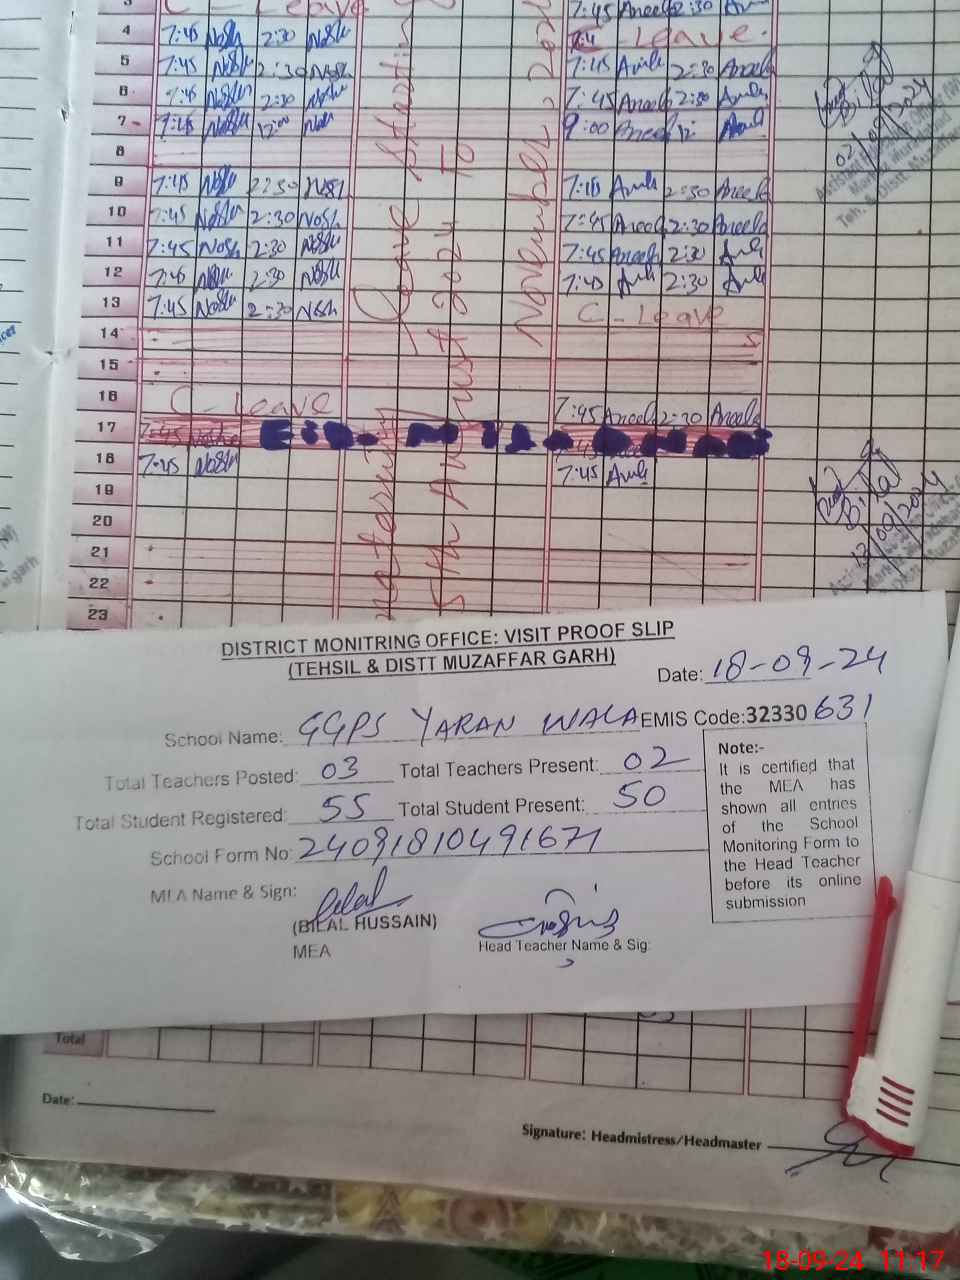 3 C - Leave 7:45 Aneela 2:30
4 7:45 Nosh 2:30 Nosh C - Leave.
5 7:45 Nosh 2:30 Nosh 7:45 2:30 Aneela
6 7:45 Nosh 2:30 Nosh 7:45 Aneela 2:30
7 7:45 Nosh 12:00 Nosh 9:00 Aneela 12:
8
9 7:45 Nosh 2:30 Nosh 7:45 2:30 Aneela
10 7:45 Nosh 2:30 Nosh 7:45 Aneela 2:30 Aneela
11 7:45 Nosh 2:30 Nosh 7:45 Aneela 2:30
12 7:45 Nosh 2:30 Nosh 7:45 2:30
13 7:45 Nosh 2:30 Nosh C - Leave
14
15
16 C - Leave 7:45 Aneela 2:30 Aneela
17 7:45
18 7:45 Nosh 7:45
19
20
21
22
23
Maternity Leave Starting
5th August 2024 To
November, 202
Bilal
02/09/2024
Bilal
13/09/2024
DISTRICT MONITRING OFFICE: VISIT PROOF SLIP
(TEHSIL & DISTT MUZAFFAR GARH)
Date: 18-09-24
School Name: GGPS YARAN WALA EMIS Code:32330 631
Total Teachers Posted: 03 Total Teachers Present: 02
Total Student Registered: 55 Total Student Present: 50
School Form No: 24091810491671
MEA Name & Sign: Bilal
(BILAL HUSSAIN)
MEA
Head Teacher Name & Sig:
Note:-
It is certified that
the MEA has
shown all entries
of the School
Monitoring Form to
the Head Teacher
before its online
submission
Total
Date:
Signature: Headmistress/Headmaster
18-09-24 11:17